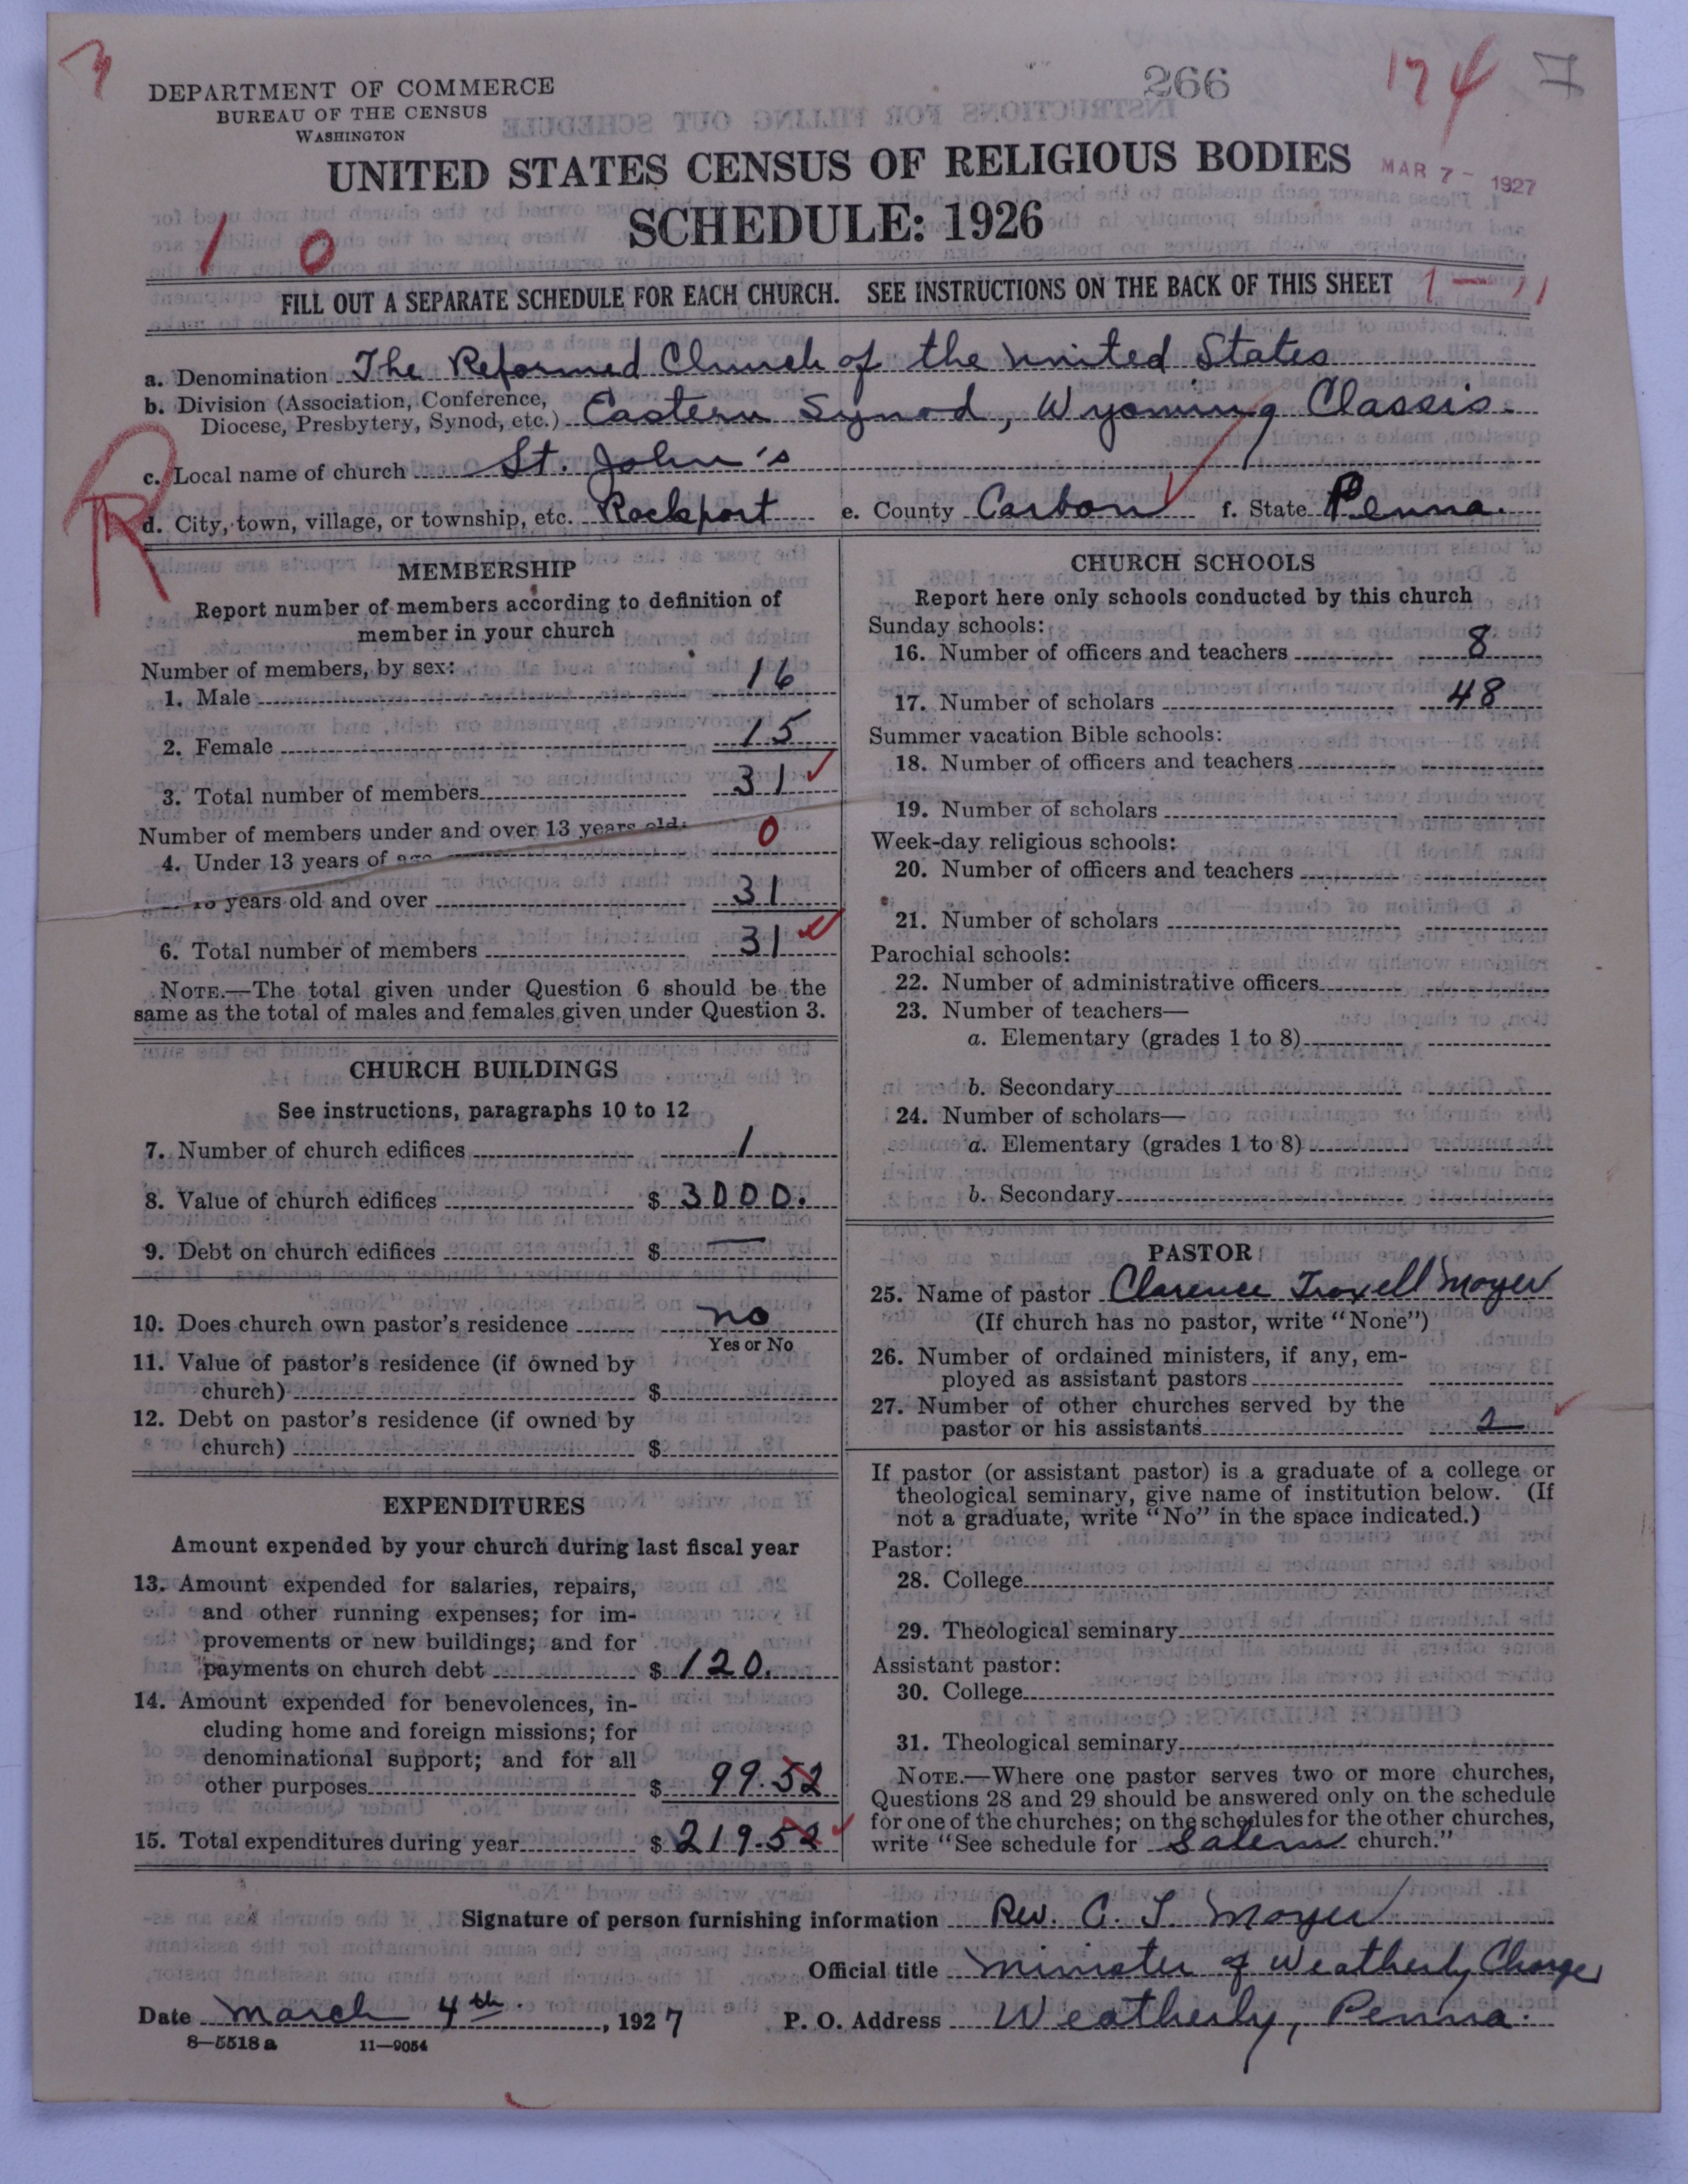 3
DEPARTMENT OF COMMERCE
BUREAU OF THE CENSUS
WASHINGTON
266
174
7
UNITED STATES CENSUS OF RELIGIOUS BODIES
MAR 7 - 1927
SCHEDULE: 1926
1 0
FILL OUT A SEPARATE SCHEDULE FOR EACH CHURCH. SEE INSTRUCTIONS ON THE BACK OF THIS SHEET
1 — 11
a. Denomination The Reformed Church of the United States
b. Division (Association, Conference, Diocese, Presbytery, Synod, etc.) Eastern Synod, Wyoming Classis.
c. Local name of church St. John's
R
d. City, town, village, or township, etc. Rockport e. County Carbon f. State Penna.
MEMBERSHIP
Report number of members according to definition of
member in your church
Number of members, by sex:
1. Male 16
2. Female 15
3. Total number of members 31
Number of members under and over 13 years old:
4. Under 13 years of age 0
years old and over 31
6. Total number of members 31
NOTE.—The total given under Question 6 should be the
same as the total of males and females given under Question 3.
CHURCH BUILDINGS
See instructions, paragraphs 10 to 12
7. Number of church edifices 1
8. Value of church edifices $ 3000.
9. Debt on church edifices $ —
10. Does church own pastor's residence no
Yes or No
11. Value of pastor's residence (if owned by
church) $
12. Debt on pastor's residence (if owned by
church) $
EXPENDITURES
Amount expended by your church during last fiscal year
13. Amount expended for salaries, repairs,
and other running expenses; for im-
provements or new buildings; and for
payments on church debt $ 120.
14. Amount expended for benevolences, in-
cluding home and foreign missions; for
denominational support; and for all
other purposes $ 99.52
15. Total expenditures during year $ 219.52
CHURCH SCHOOLS
Report here only schools conducted by this church
Sunday schools:
16. Number of officers and teachers 8
17. Number of scholars 48
Summer vacation Bible schools:
18. Number of officers and teachers
19. Number of scholars
Week-day religious schools:
20. Number of officers and teachers
21. Number of scholars
Parochial schools:
22. Number of administrative officers
23. Number of teachers—
a. Elementary (grades 1 to 8)
b. Secondary
24. Number of scholars—
a. Elementary (grades 1 to 8)
b. Secondary
PASTOR
25. Name of pastor Clarence Troxell Moyer
(If church has no pastor, write "None")
26. Number of ordained ministers, if any, em-
ployed as assistant pastors
27. Number of other churches served by the
pastor or his assistants 2
If pastor (or assistant pastor) is a graduate of a college or
theological seminary, give name of institution below. (If
not a graduate, write "No" in the space indicated.)
Pastor:
28. College
29. Theological seminary
Assistant pastor:
30. College
31. Theological seminary
NOTE.—Where one pastor serves two or more churches,
Questions 28 and 29 should be answered only on the schedule
for one of the churches; on the schedules for the other churches,
write "See schedule for Salem church."
Signature of person furnishing information Rev. C. T. Moyer
Official title Minister of Weatherly Charge
Date March 4th, 1927 P. O. Address Weatherly, Penna.
8—5518 a 11—9054